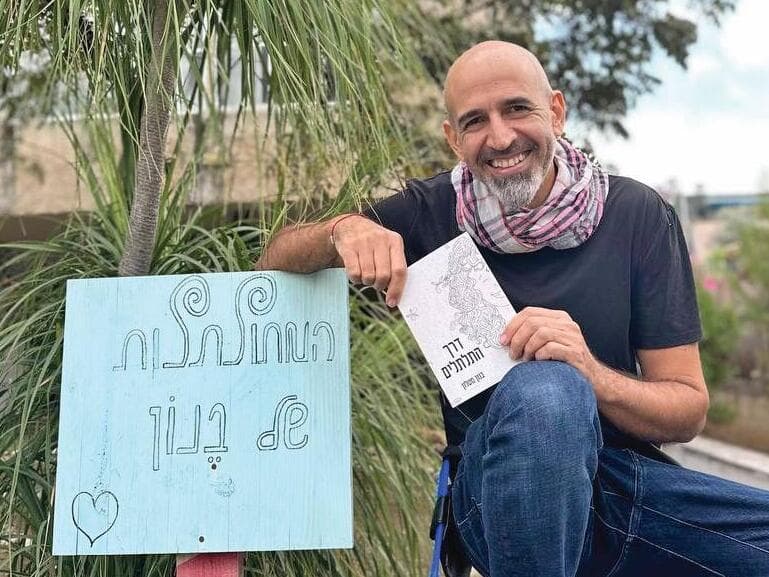 המתולתלות
של בָּנוֹן
דרך
התלתלים
בנון